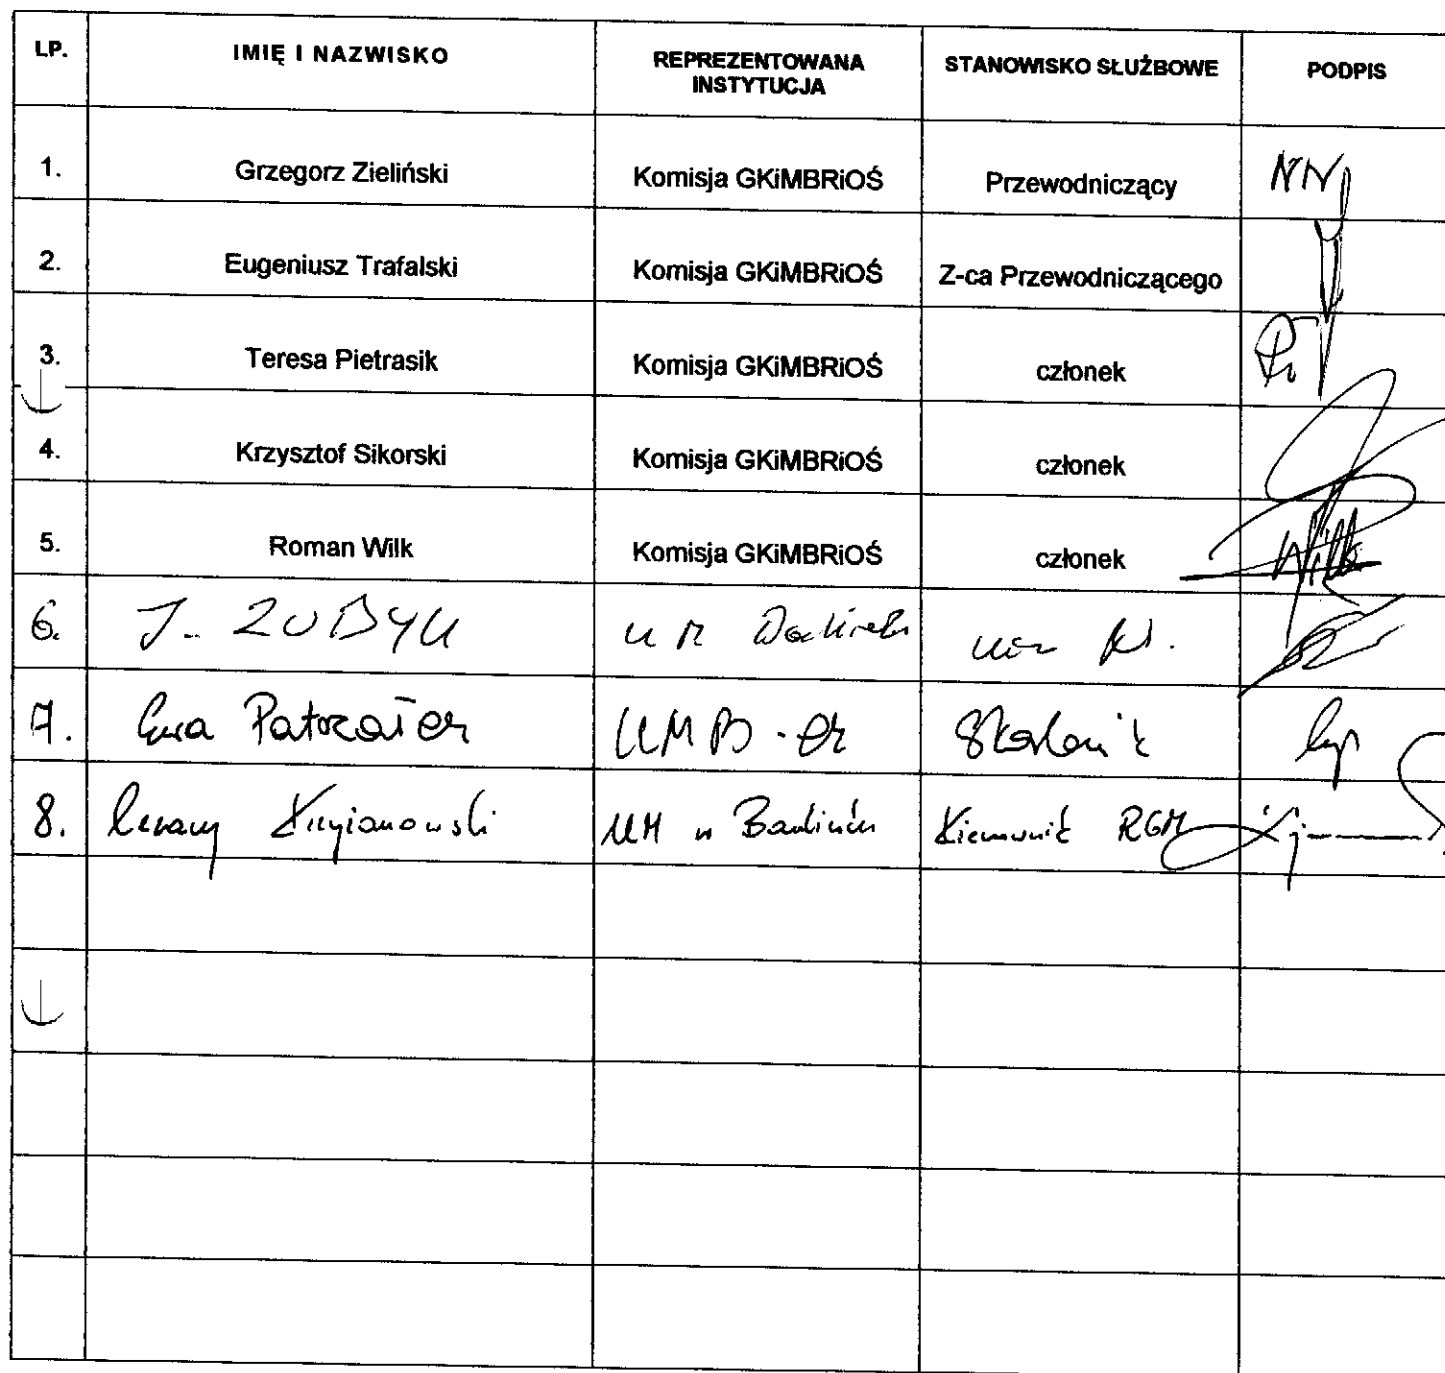 LP. IMIĘ I NAZWISKO REPREZENTOWANA INSTYTUCJA STANOWISKO SŁUŻBOWE PODPIS
1. Grzegorz Zieliński Komisja GKiMBRiOŚ Przewodniczący NN
2. Eugeniusz Trafalski Komisja GKiMBRiOŚ Z-ca Przewodniczącego
3. Teresa Pietrasik Komisja GKiMBRiOŚ członek
4. Krzysztof Sikorski Komisja GKiMBRiOŚ członek
5. Roman Wilk Komisja GKiMBRiOŚ członek Wilk
6. J. ZUBYK
7. Ewa
8. UM w Kierownik RGM